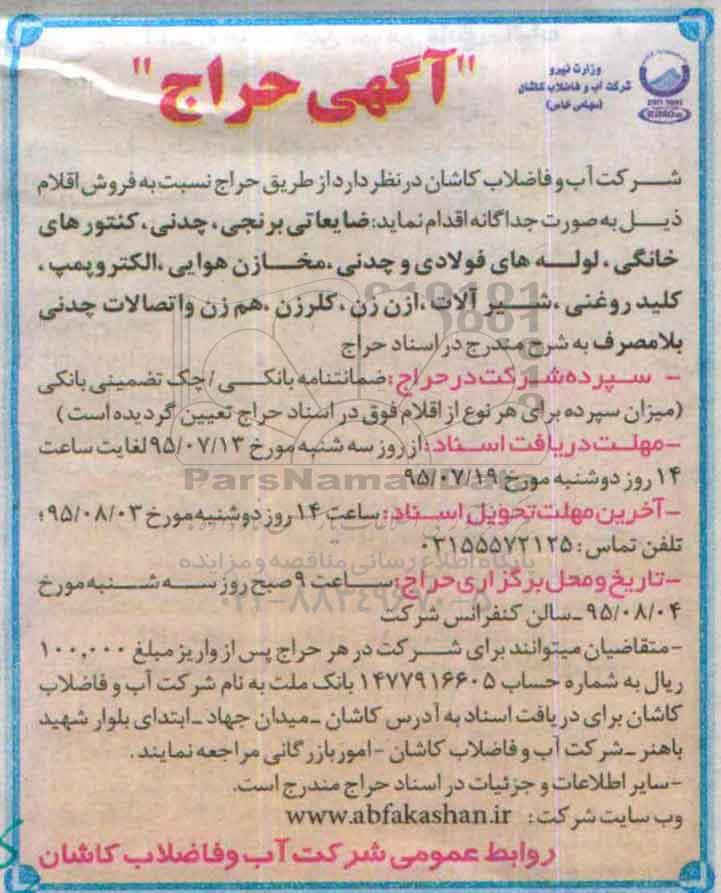 وزارت نیرو
شرکت آب و فاضلاب کاشان
(سهامی خاص)
"آگهی حراج"
شرکت آب و فاضلاب کاشان در نظر دارد از طریق حراج نسبت به فروش اقلام
ذیل به صورت جداگانه اقدام نماید: ضایعاتی برنجی، چدنی، کنتورهای
خانگی، لوله های فولادی و چدنی، مخازن هوایی، الکتروپمپ،
کلید روغنی، شیر آلات، ازن زن، کلرزن، هم زن و اتصالات چدنی
بلامصرف به شرح مندرج در اسناد حراج
- سپرده شرکت در حراج: ضمانتنامه بانکی / چک تضمینی بانکی
(میزان سپرده برای هر نوع از اقلام فوق در اسناد حراج تعیین گردیده است)
-مهلت دریافت اسناد: از روز سه شنبه مورخ ۹۵/۰۷/۱۳ لغایت ساعت
۱۴ روز دوشنبه مورخ ۹۵/۰۷/۱۹
ParsNamadData
-آخرین مهلت تحویل اسناد: ساعت ۱۴ روز دوشنبه مورخ ۹۵/۰۸/۰۳؛
تلفن تماس: ۰۳۱۵۵۵۷۲۱۲۵
پایگاه اطلاع رسانی مناقصه و مزایده
-تاریخ و محل برگزاری حراج: ساعت ۹ صبح روز سه شنبه مورخ
۹۵/۰۸/۰۴ -سالن کنفرانس شرکت
-متقاضیان میتوانند برای شرکت در هر حراج پس از واریز مبلغ ۱۰۰,۰۰۰
ریال به شماره حساب ۱۴۷۷۹۱۶۶۰۵ بانک ملت به نام شرکت آب و فاضلاب
کاشان برای دریافت اسناد به آدرس کاشان -میدان جهاد -ابتدای بلوار شهید
باهنر -شرکت آب و فاضلاب کاشان -امور بازرگانی مراجعه نمایند.
-سایر اطلاعات و جزئیات در اسناد حراج مندرج است.
وب سایت شرکت: www.abfakashan.ir
روابط عمومی شرکت آب وفاضلاب کاشان